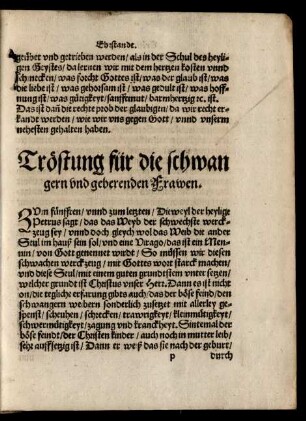 Ehstande.
geübet vnd getrieben werden/ als in der Schul des heyli-
gen Geystes/ da lernen wir mit dem hertzen kosten vnnd
schmecken/ was forcht Gottes ist/ was der glaub ist/ was
die liebe ist/ was gehorsam ist/ was gedult ist/ was hoff-
nung ist/ was gütigkeyt/ sanfftmut/ barmhertzig ꝛc. ist.
Das ist dañ die recht prob der glaubigen/ da wir recht er-
kandt werden/ wie wir vns gegen Gott/ vnnd vnserm
nehesten gehalten haben.
Tröstung für die schwan
gern vnd geberenden Frawen.
ZVm fünfften/ vnnd zum letzten/ Dieweyl der heylige
Petrus sagt/ das das Weyb der schwechste werck-
zeug sey/ vnnd doch gleych wol das Weib die ander
Seul im hauß sein sol/ vnd eine Virago/ das ist ein Men-
nin/ von Gott genennet wurde/ So müssen wir diesen
schwachen werckzeug/ mit Gottes wort starck machen/
vnd diese Seul/ mit einem guten grundtstein vnter setzen/
welcher grundt ist Christus vnser Herr. Dann es ist nicht
on/ die tegliche erfarung gibts auch/ das der böse feind/ den
schwangern weybern sonderlich zusetzet mit allerley ge-
spenst/ scheuhen/ schrecken/ trawrigkeyt/ kleinmütigkeyt/
schwermütigkeyt/ zagung vnd kranckheyt. Sintemal der
böse feindt/ der Christen kinder/ auch noch in mutter leib/
sehr auffsetzig ist/ Dann er weß das sie nach der geburt/
p durch